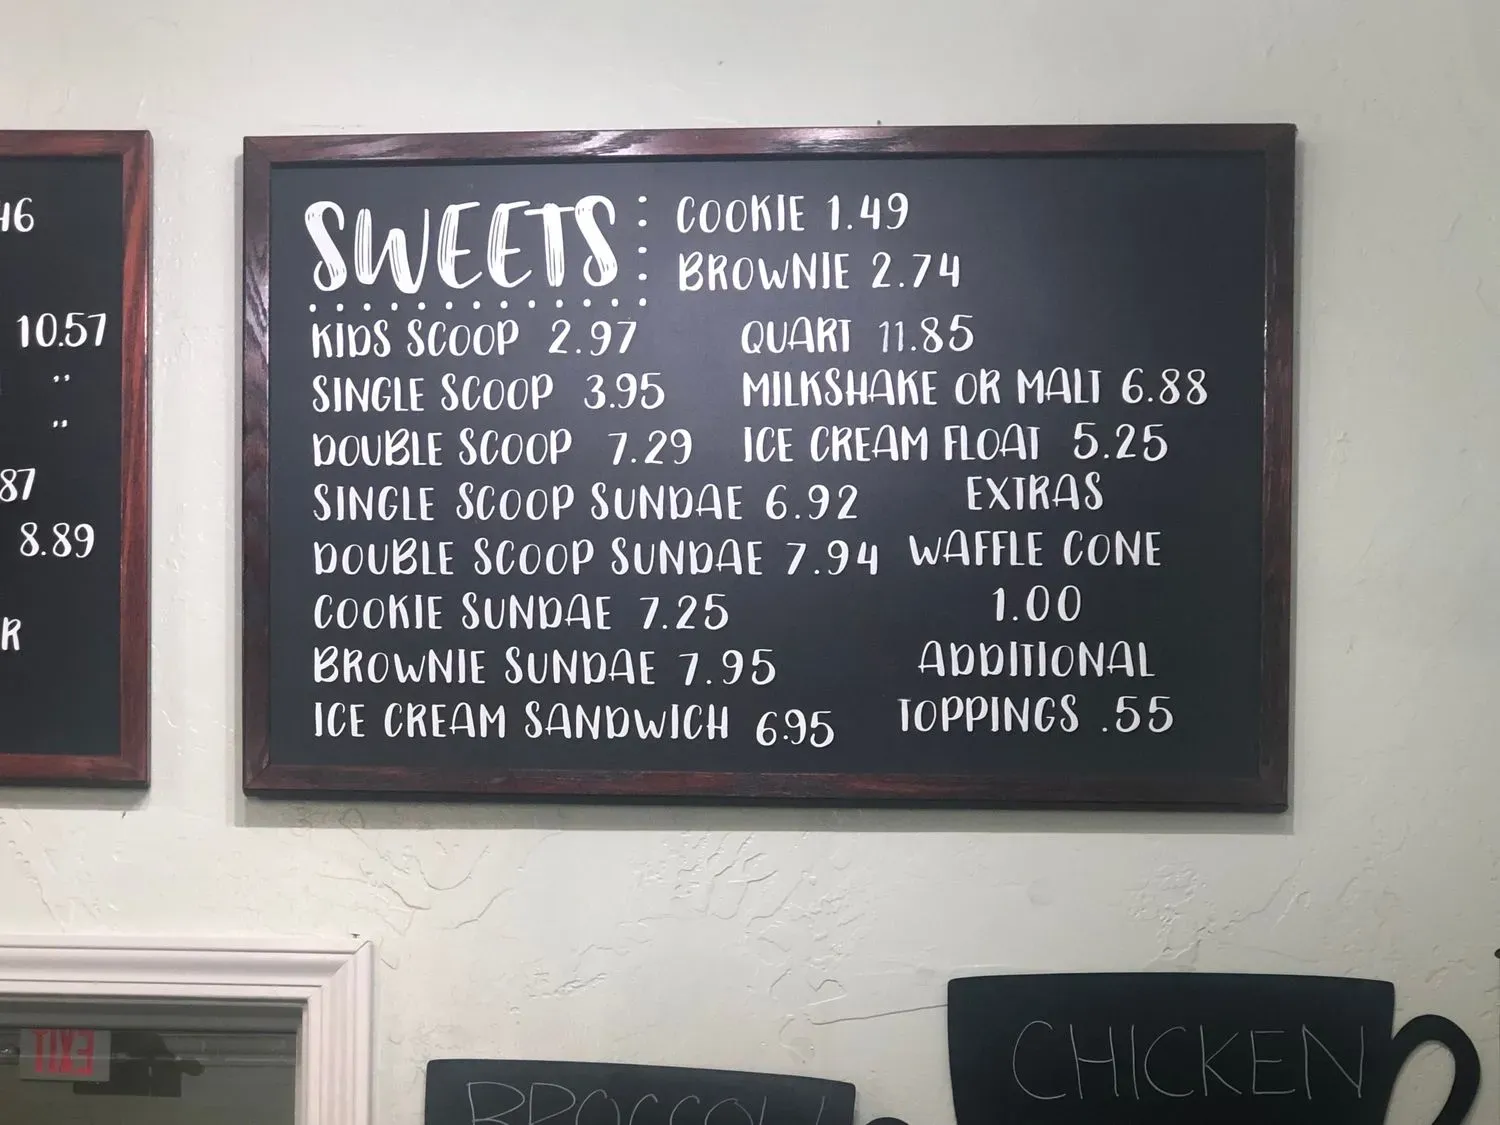 46
10.57
"
"
87
8.89
R
SWEETS
COOKIE 1.49
BROWNIE 2.74
KIDS SCOOP 2.97
SINGLE SCOOP 3.95
DOUBLE SCOOP 7.29
SINGLE SCOOP SUNDAE 6.92
DOUBLE SCOOP SUNDAE 7.94
COOKIE SUNDAE 7.25
BROWNIE SUNDAE 7.95
ICE CREAM SANDWICH 6.95
QUART 11.85
MILKSHAKE OR MALT 6.88
ICE CREAM FLOAT 5.25
EXTRAS
WAFFLE CONE
1.00
ADDITIONAL
TOPPINGS .55
EXIT
BROCCOLI
CHICKEN